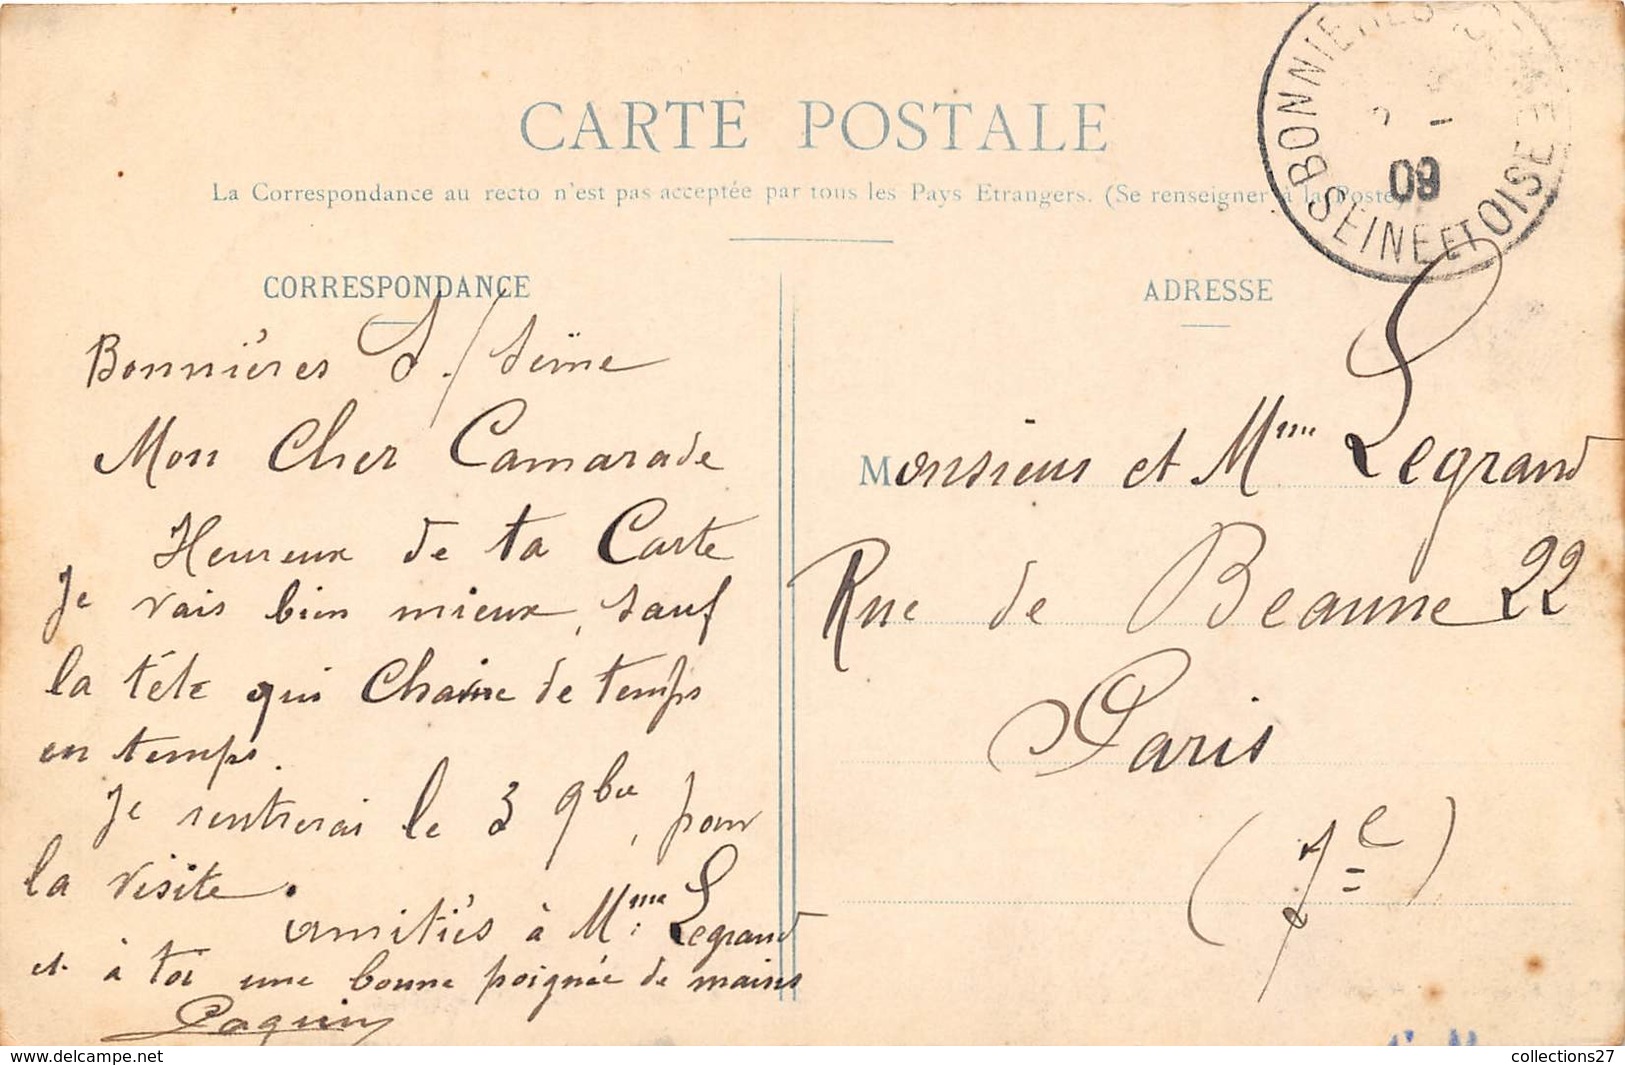 CARTE POSTALE
La Correspondance au recto n'est pas acceptée par tous les Pays Etrangers. (Se renseigner à la Poste)
BONNIERES
SEINE ET OISE
09
CORRESPONDANCE
Bonnières S./Seine
Mon Cher Camarade
Heureux de ta Carte
Je vais bien mieux, sauf
la tête qui de temps
en temps.
Je rentrerai le 3 9bre, pour
la visite.
amitiés à Mme Legrand
et à toi une bonne poignée de mains
Paquin
ADRESSE
Monsieur et Mme Legrand
Rue de Beaune 22
Paris
(7e)
collections27